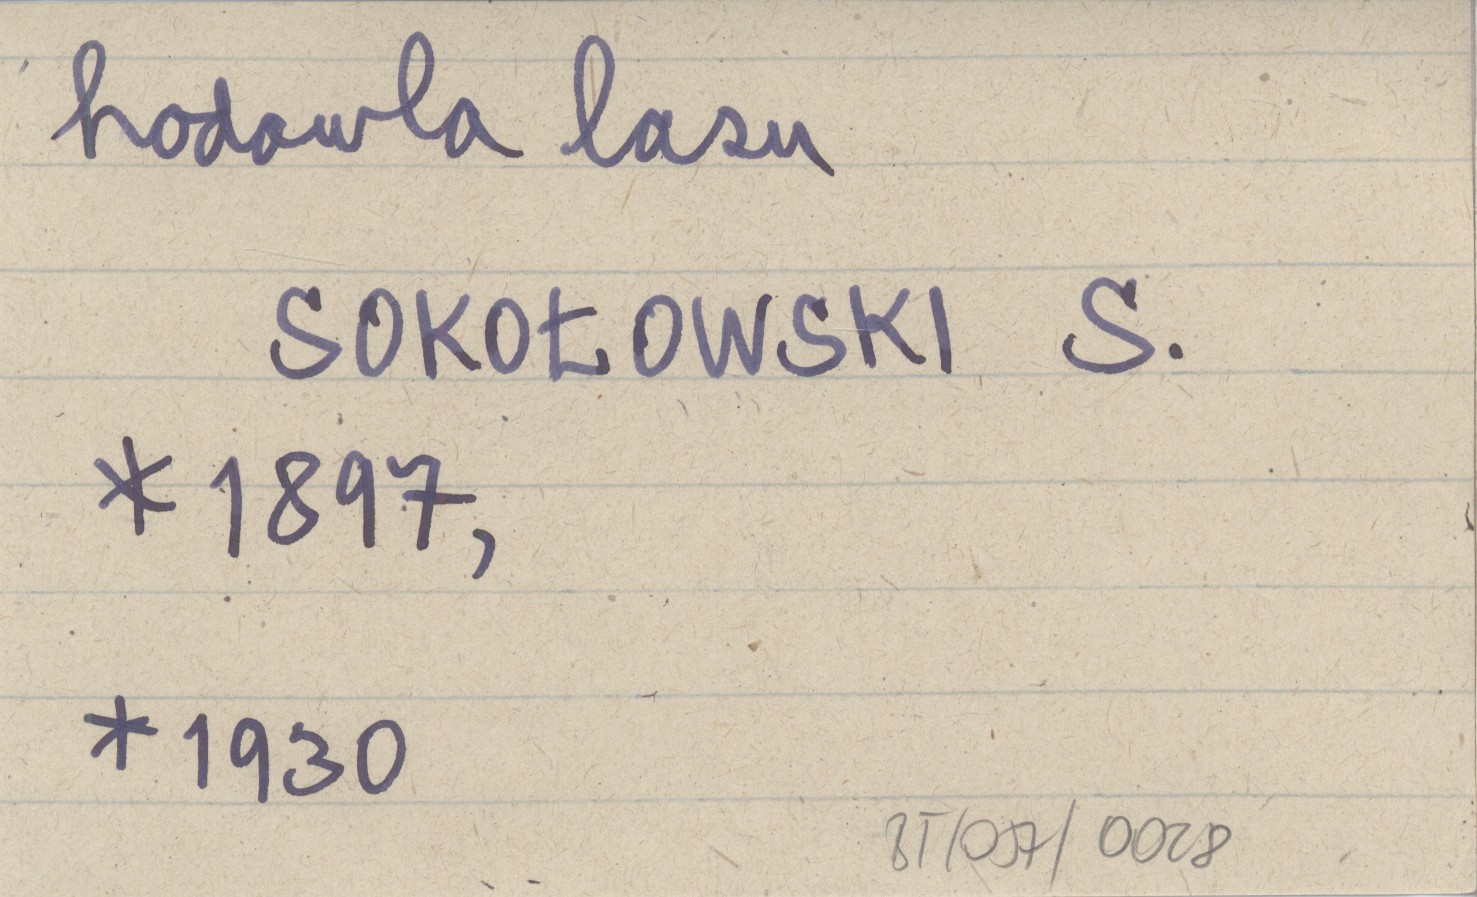 hodowla lasu
SOKOŁOWSKI S.
*1897,
*1930
BT/057/0028